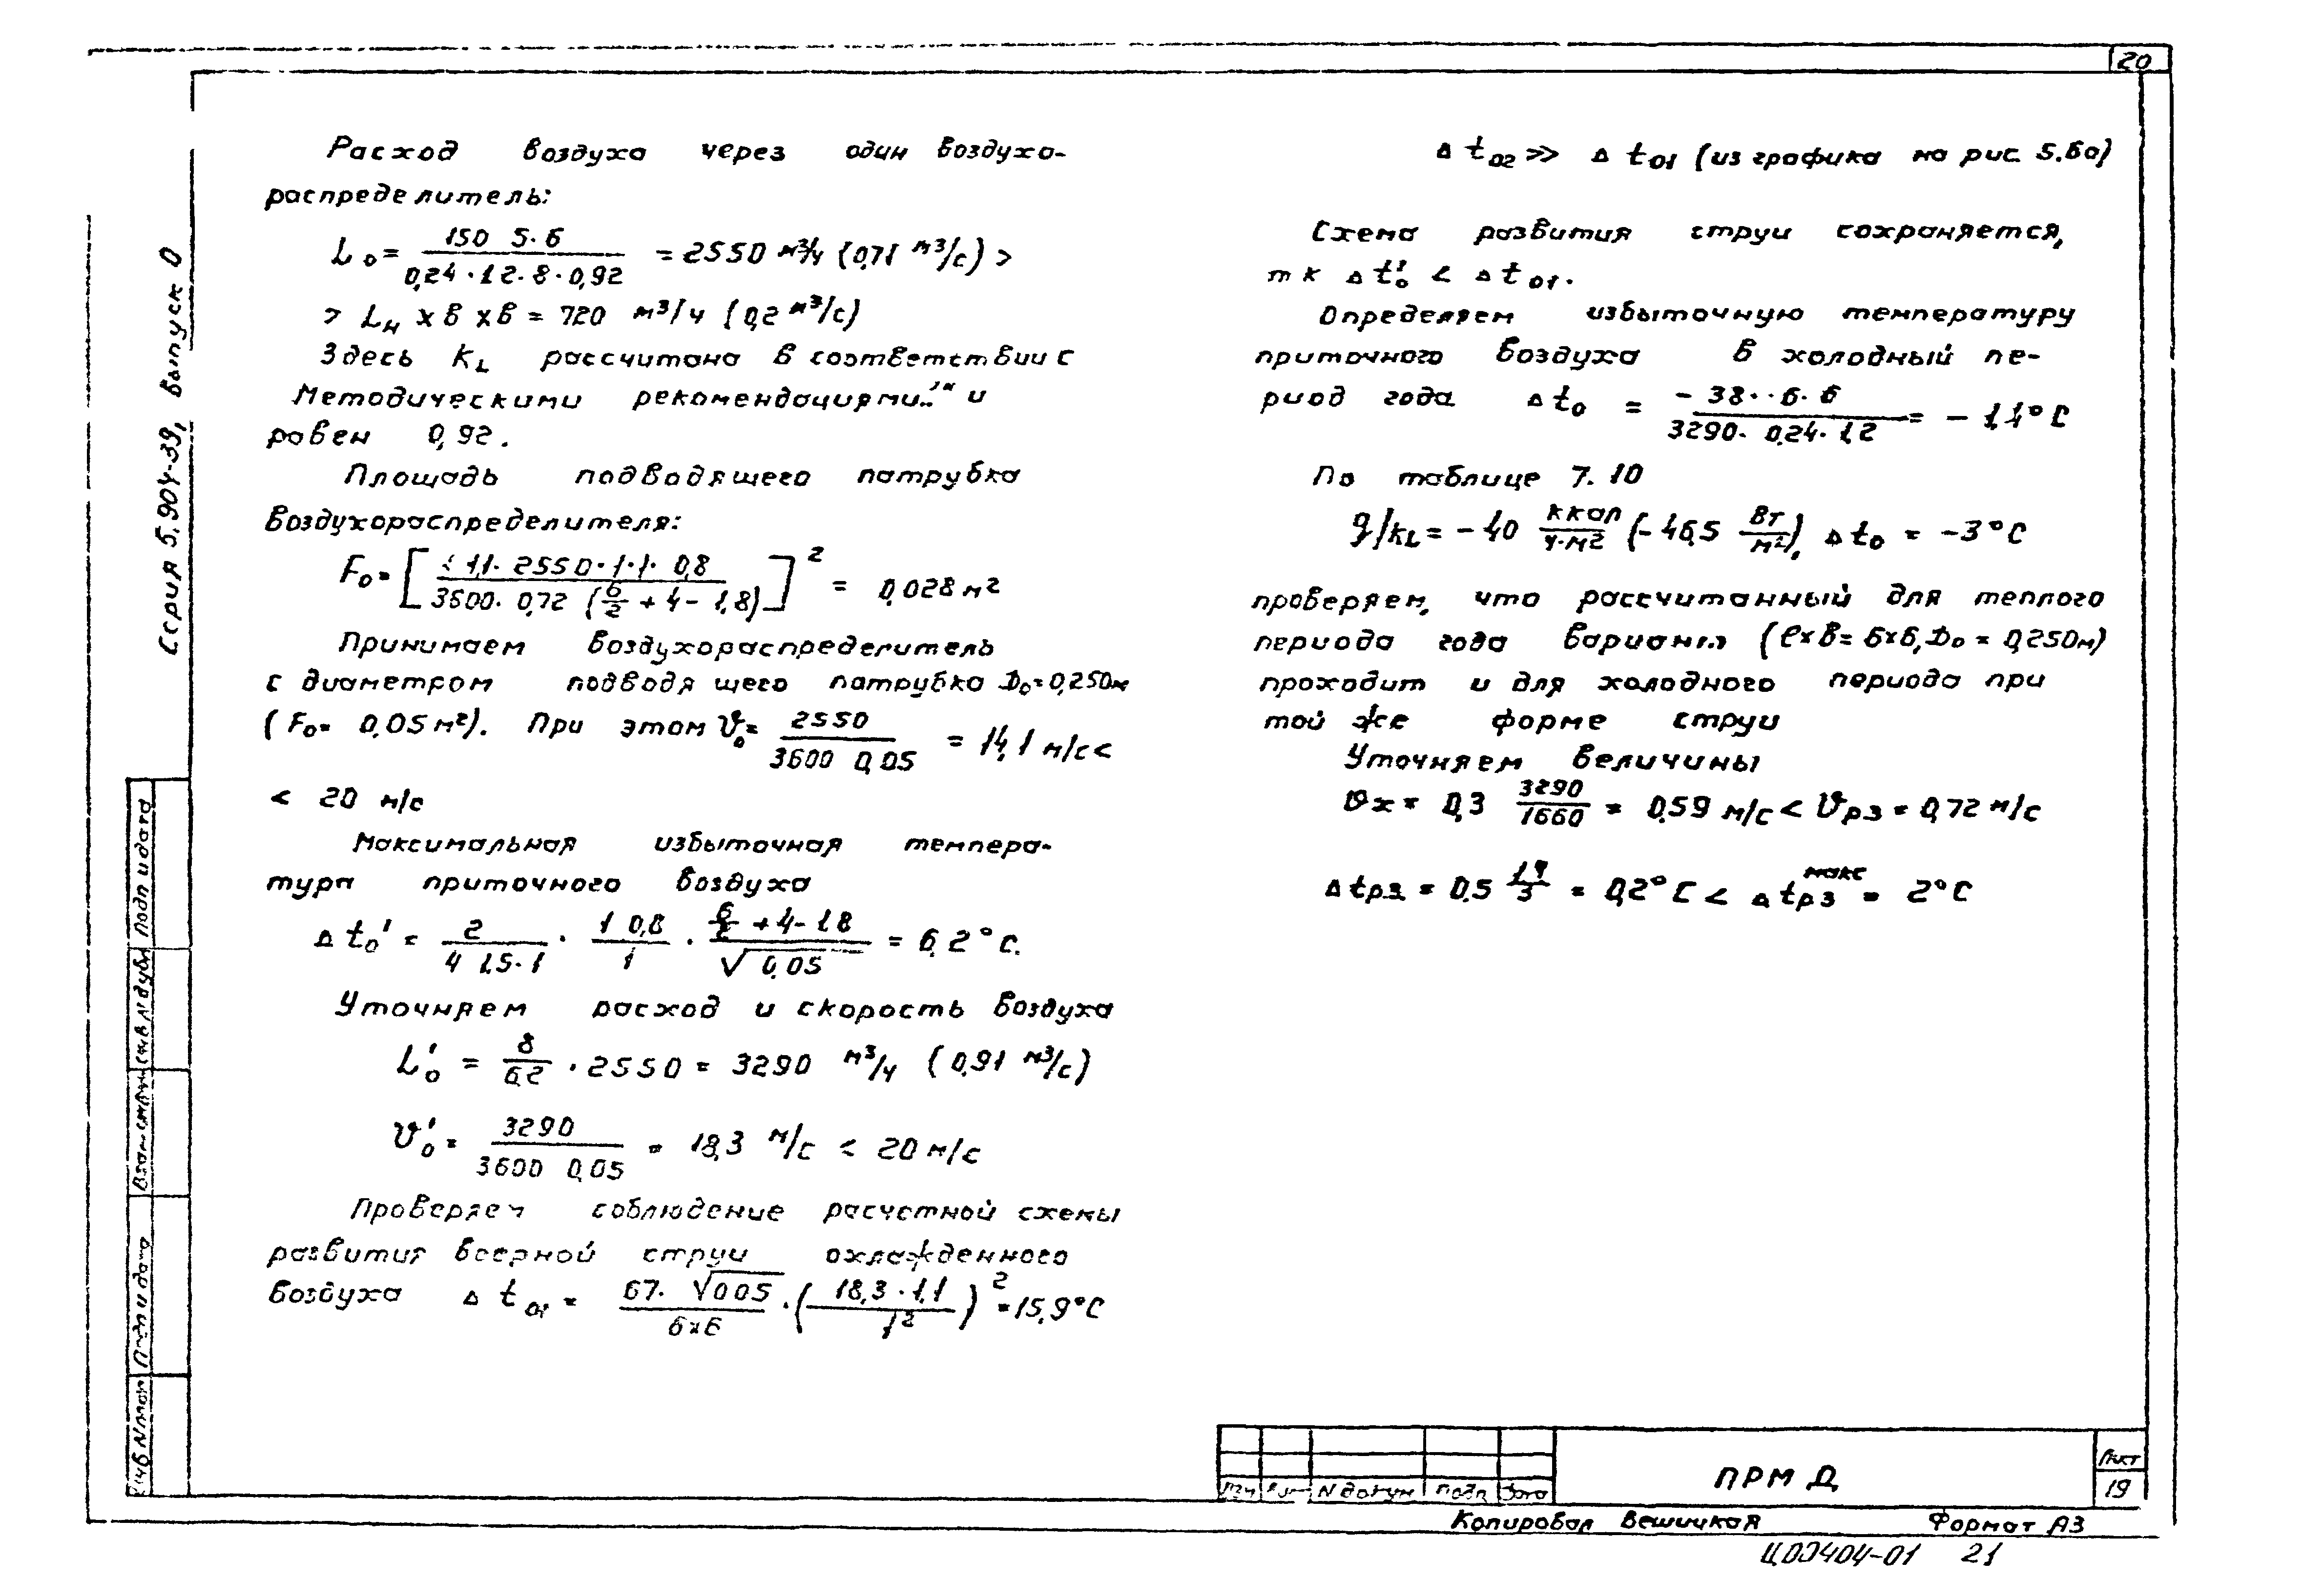 20
Расход воздуха через один воздухо-
распределитель:
L₀ = 150 5·6 / 0,24·1,2·8·0,92 = 2550 м³/ч (0,71 м³/с) >
> Lн × в × в = 720 м³/ч (0,2 м³/с)
Здесь KL рассчитана в соответствии с
Методическими рекомендациями..." и
равен 0,92.
Площадь подводящего патрубка
воздухораспределителя:
F₀ = [1,1·2550·1·1·0,8 / 3600·0,72 (6/2 + 4 - 1,8)]² = 0,028 м²
Принимаем воздухораспределитель
с диаметром подводящего патрубка D₀=0,250м
(F₀= 0,05 м²). При этом V₀= 2550 / 3600 0,05 = 14,1 м/с <
< 20 м/с
Максимальная избыточная темпера-
тура приточного воздуха
Δt₀' = 2 / 4 1,5·1 · 1 0,8 / 1 · 6/2 + 4 - 1.8 / √0,05 = 6,2°С.
Уточняем расход и скорость воздуха
L₀' = 8 / 6,2 · 2550 = 3290 м³/ч (0,91 м³/с)
V₀' = 3290 / 3600 0,05 = 18,3 м/с < 20 м/с
Проверяем соблюдение расчетной схемы
развития веерной струи охлажденного
воздуха Δt₀₁ = 67·√005 / 6×6 · (18,3·1,1 / 1²)² = 15,9°С
Δt₀₂ >> Δt₀₁ (из графика на рис. 5.6а)
Схема развития струи сохраняется,
тк Δt₀' < Δt₀₁.
Определяем избыточную температуру
приточного воздуха в холодный пе-
риод года Δt₀ = -38··6·6 / 3290·0,24·1,2 = -1,4°С
По таблице 7.10
q/kL = -40 ккал/ч·м² (-46,5 Вт/м²), Δt₀ = -3°С
проверяем, что рассчитанный для теплого
периода года вариант (ℓ×в= 6×6, D₀ = 0,250м)
проходит и для холодного периода при
той же форме струи
Уточняем величины
Vx = 0,3 3290/1660 = 0,59 м/с < Vрз = 0,72 м/с
Δtрз = 0,5 /3 = 0,2°С < Δtрз макс = 2°С
Серия 5.904-39, выпуск 0
Подп и дата
Инв N дубл
Взам инв N
Подп и дата
Инв N подл
Изм Лист N докум Подп Дата
ПРМ Д
Лист
19
Копировал Вешицкая Формат А3
Ц00404-01 21